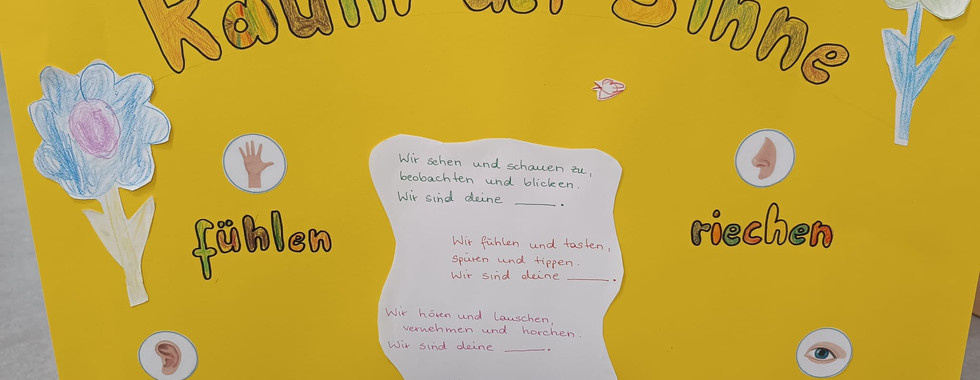 Raum der Sinne
Wir sehen und schauen zu,
beobachten und blicken.
Wir sind deine ____.
fühlen
riechen
Wir fühlen und tasten,
spüren und tippen.
Wir sind deine ____.
Wir hören und lauschen,
vernehmen und horchen.
Wir sind deine ____.